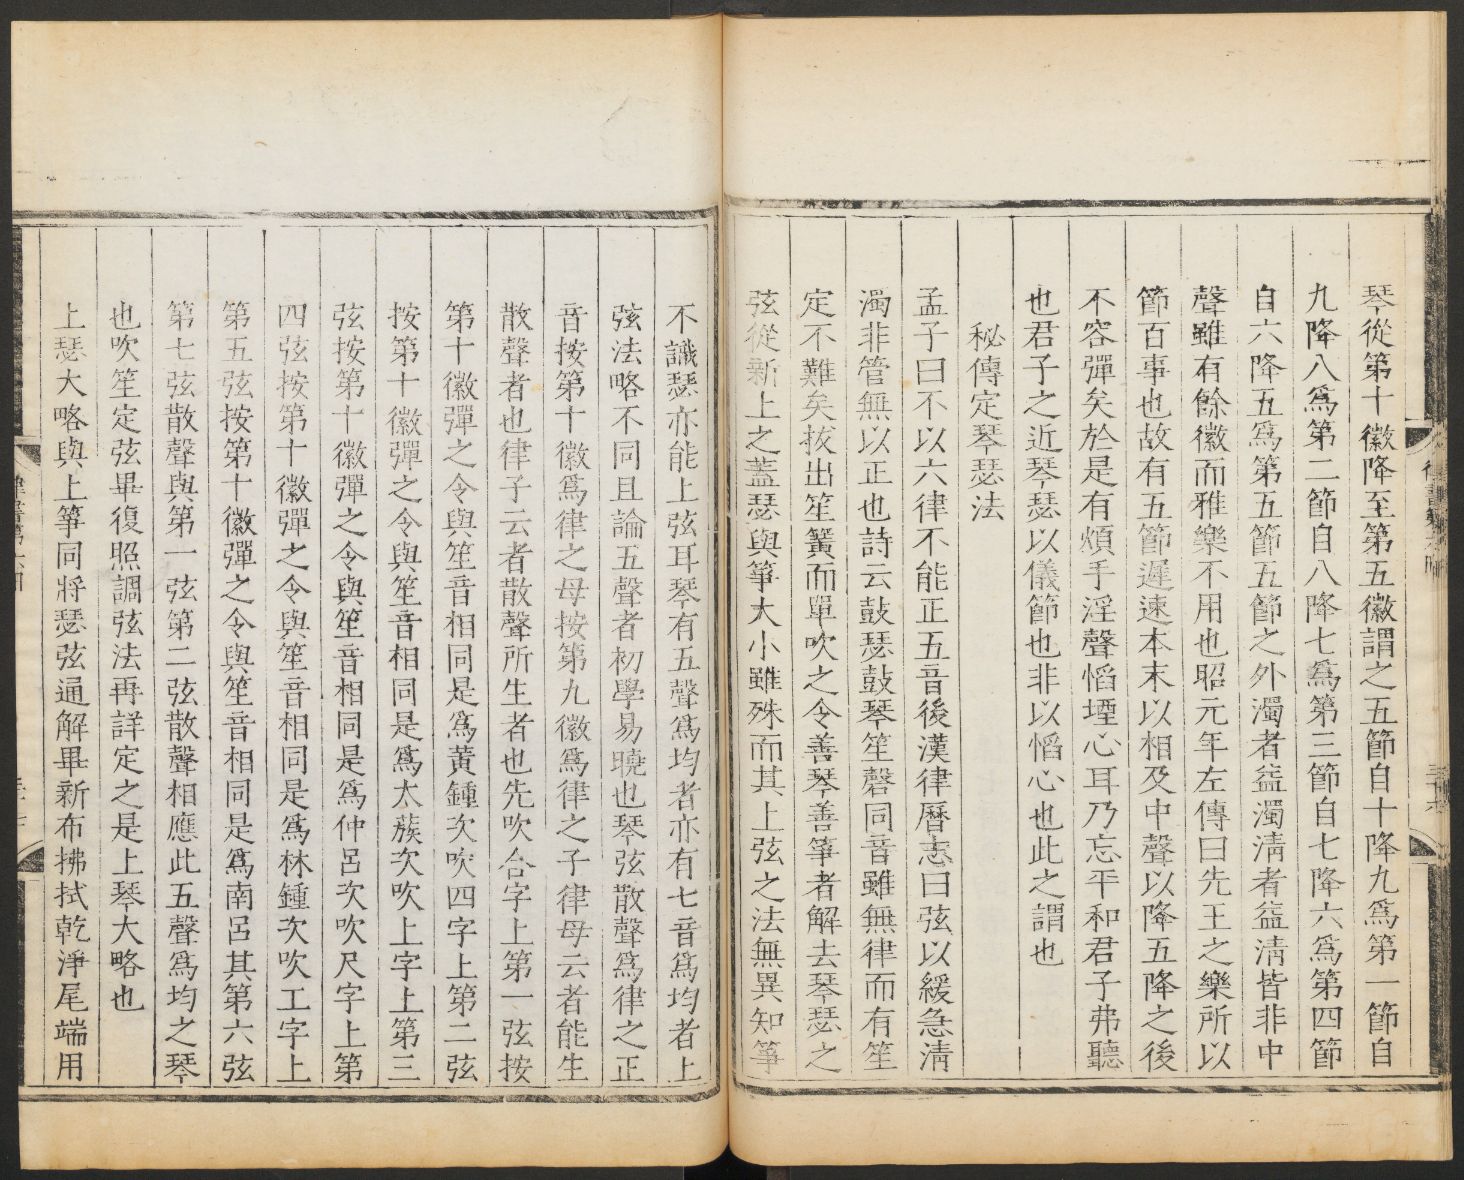 琴從第十徽降至第五徽謂之五節自十降九爲第一節自
九降八爲第二節自八降七爲第三節自七降六爲第四節
自六降五爲第五節五節之外濁者益濁淸者益淸皆非中
聲雖有餘徽而雅樂不用也昭元年左傳曰先王之樂所以
節百事也故有五節遲速本末以相及中聲以降五降之後
不容彈矣於是有煩手淫聲慆堙心耳乃忘平和君子弗聽
也君子之近琴瑟以儀節也非以慆心也此之謂也
秘傳定琴瑟法
孟子曰不以六律不能正五音後漢律曆志曰弦以緩急淸
濁非管無以正也詩云鼓瑟鼓琴笙磬同音雖無律而有笙
定不難矣拔出笙簧而單吹之令善琴善箏者解去琴瑟之
弦從新上之蓋瑟與箏大小雖殊而其上弦之法無異知箏
不識瑟亦能上弦耳琴有五聲爲均者亦有七音爲均者上
弦法略不同且論五聲者初學易曉也琴弦散聲爲律之正
音按第十徽爲律之母按第九徽爲律之子律母云者能生
散聲者也律子云者散聲所生者也先吹合字上第一弦按
第十徽彈之令與笙音相同是爲黃鍾次吹四字上第二弦
按第十徽彈之令與笙音相同是爲太蔟次吹上字上第三
弦按第十徽彈之令與笙音相同是爲仲呂次吹尺字上第
四弦按第十徽彈之令與笙音相同是爲林鍾次吹工字上
第五弦按第十徽彈之令與笙音相同是爲南呂其第六弦
第七弦散聲與第一弦第二弦散聲相應此五聲爲均之琴
也吹笙定弦畢復照調弦法再詳定之是上琴大略也
上瑟大略與上箏同將瑟弦通解畢新布拂拭乾淨尾端用